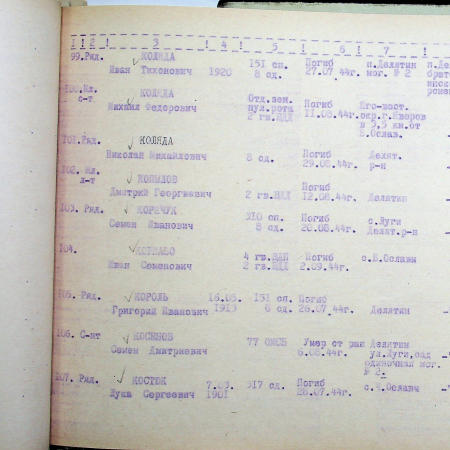 1 ! 2 ! 3 ! 4 ! 5 ! 6 ! 7 !
99. Ряд. КОЛЯДА 151 сп. Погиб н.Делятин
Иван Тихонович 1920 8 сд. 27.07.44г. мог. № 2
100. Мл. КОЛЯДА Отд.зен.
с-т Михаил Федорович пул.рота Погиб Юго-вост.
2 гв.ВДД 11.08.44г. окр.г.Яворов
в 3,5 км.от
Б.Ослав.
101. Ряд. КОЛЯДА
Николай Михайлович 8 сд. Погиб Делят.
29.08.44г. р-н
102. Мл. КОПЫЛОВ Погиб
л-т Дмитрий Георгиевич 2 гв.ВДД 12.08.44г. Делятин
103. Ряд. КОРЕЧУК 310 сп. Погиб с.Луги
Семен Иванович 8 сд. 20.08.44г. Делят.р-н
104. 4 гв.ВДП Погиб с.Б.Ославы
Иван Семенович 2 гв.ВДД 2.09.44г.
105. Ряд. КОРОЛЬ 16.05. 151 сп. Погиб
Григорий Иванович 1913 8 сд. 26.07.44г. Делятин
106. С-нт КОСИНОВ 77 ОМСБ Умер от ран Делятин
Семен Дмитриевич 6.08.44г. ул.Луги,сад
одиночная мог.
№ 2.
107. Ряд. КОСТЮК 7.03. 317 сд. Погиб с.Ч.Ославы
Лука Сергеевич 1901 26.07.44г.